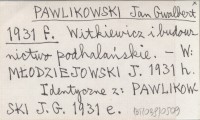 PAWLIKOWSKI Jan Gwalbert
1931 f. Witkiewicz i budow
nictwo podhalańskie. – W:
MŁODZIEJOWSKI J. 1931 h.
Identyczne z: PAWLIKOW-
SKI J.G. 1931 e.